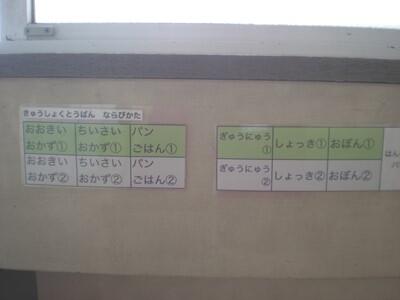 きゅうしょくとうばん　ならびかた
おおきい
おかず①
ちいさい
おかず①
パン
ごはん①
おおきい
おかず②
ちいさい
おかず②
パン
ごはん②
ぎゅうにゅう
①
しょっき①
おぼん①
ぎゅうにゅう
②
しょっき②
おぼん②